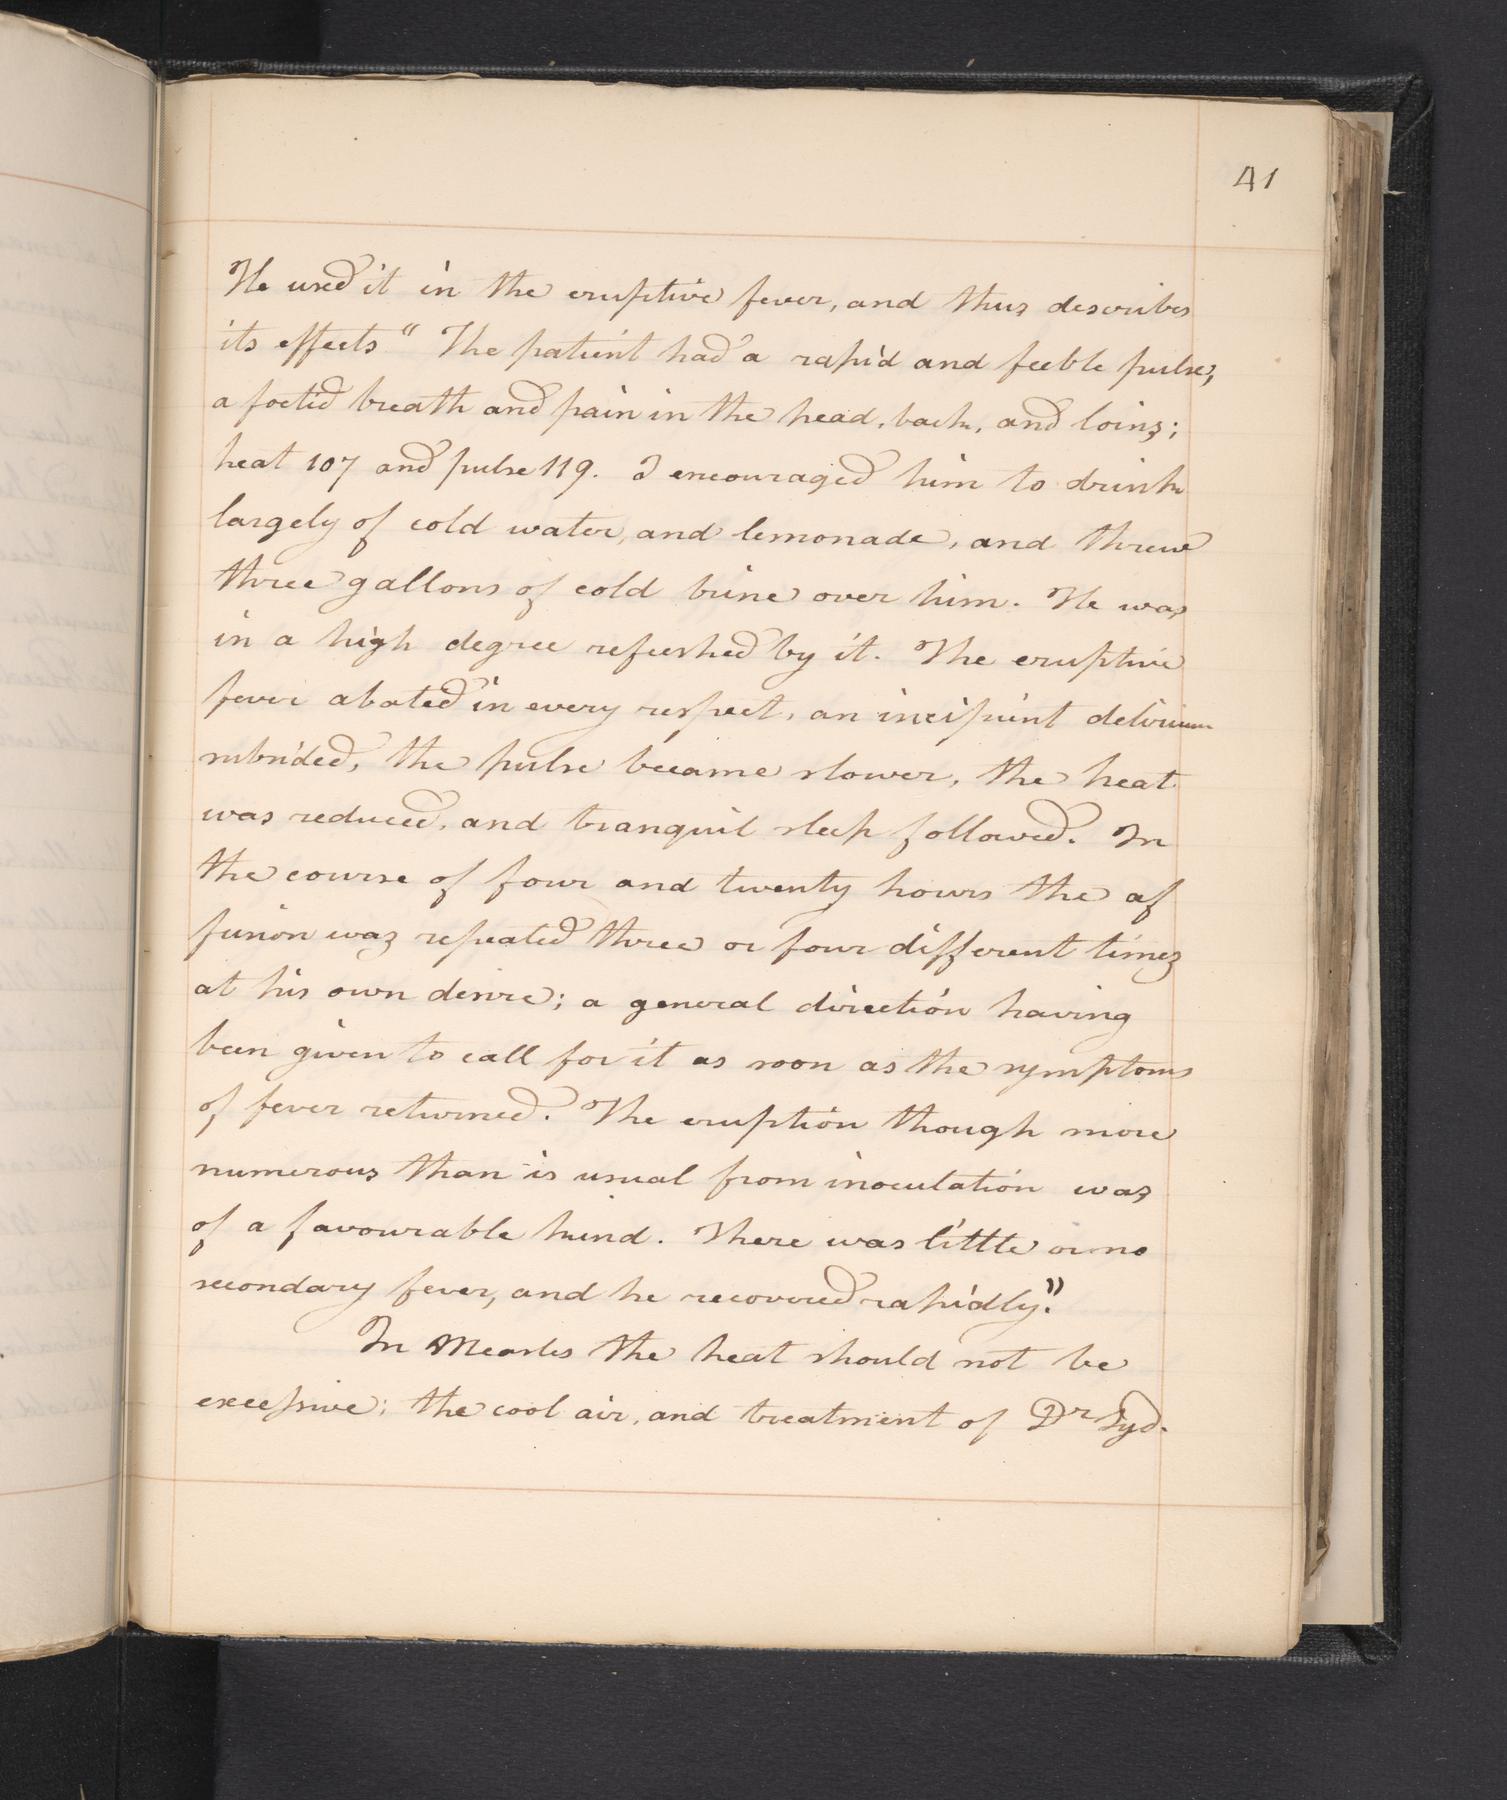 41
He used it in the eruptive fever, and thus describes
its effects "The patient had a rapid and feeble pulse,
a foetid breath and pain in the head, back, and loins;
heat 107 and pulse 119. I encouraged him to drink
largely of cold water, and lemonade, and threw
three gallons of cold brine over him. He was
in a high degree refreshed by it. The eruptive
fever abated in every respect, an incipient delirium
subsided, the pulse became slower, the heat
was reduced, and tranquil sleep followed. In
the course of four and twenty hours the af
fusion was repeated three or four different times
at his own desire; a general direction having
been given to call for it as soon as the symptoms
of fever returned. The eruption though more
numerous than is usual from inoculation was
of a favourable kind. There was little or no
secondary fever, and he recovered rapidly."
In Measles the heat should not be
excessive; the cool air, and treatment of Dr Syd.